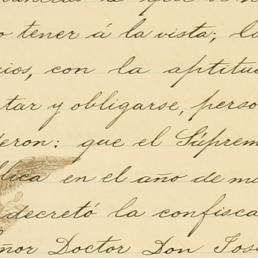 que
o tener á la vista; la
cios, con la aptitud
tar y obligarse, perso
eron: que el Suprem
blica en el año de m
decretó la confisca
ñor Doctor Don José